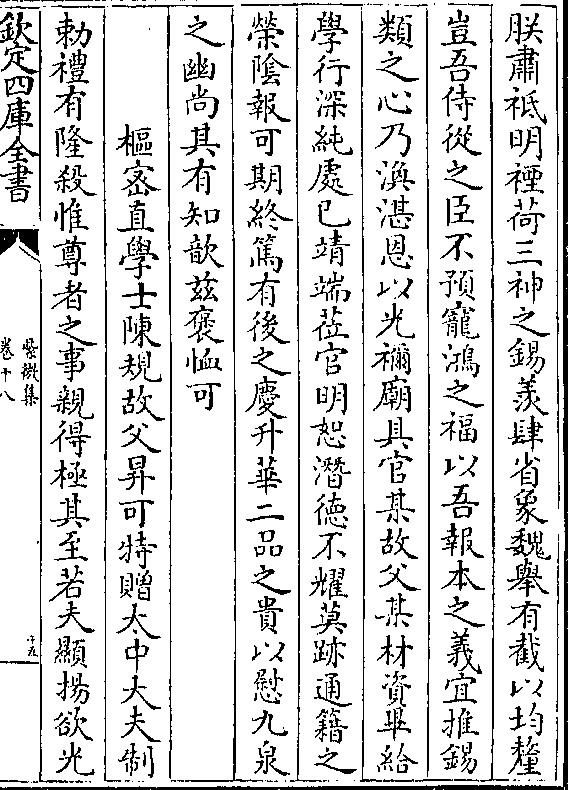 朕肅祗明禋荷三神之錫羨肆省象魏舉有截以均釐
豈吾侍從之臣不預寵鴻之福以吾報本之義宜推錫
類之心乃渙湛恩以光禰廟具官某故父某材資畢給
學行深純處已靖端莅官明恕潛德不耀莫跡通籍之
榮隂報可期終篤有後之慶升華二品之貴以慰九泉
之幽尚其有知歆兹褒恤可
樞宻直學士陳規故父昇可特贈太中大夫制
勅禮有隆殺惟尊者之事親得極其至若夫顯揚欲光
欽定四庫全書
紫微集
卷十八
十五